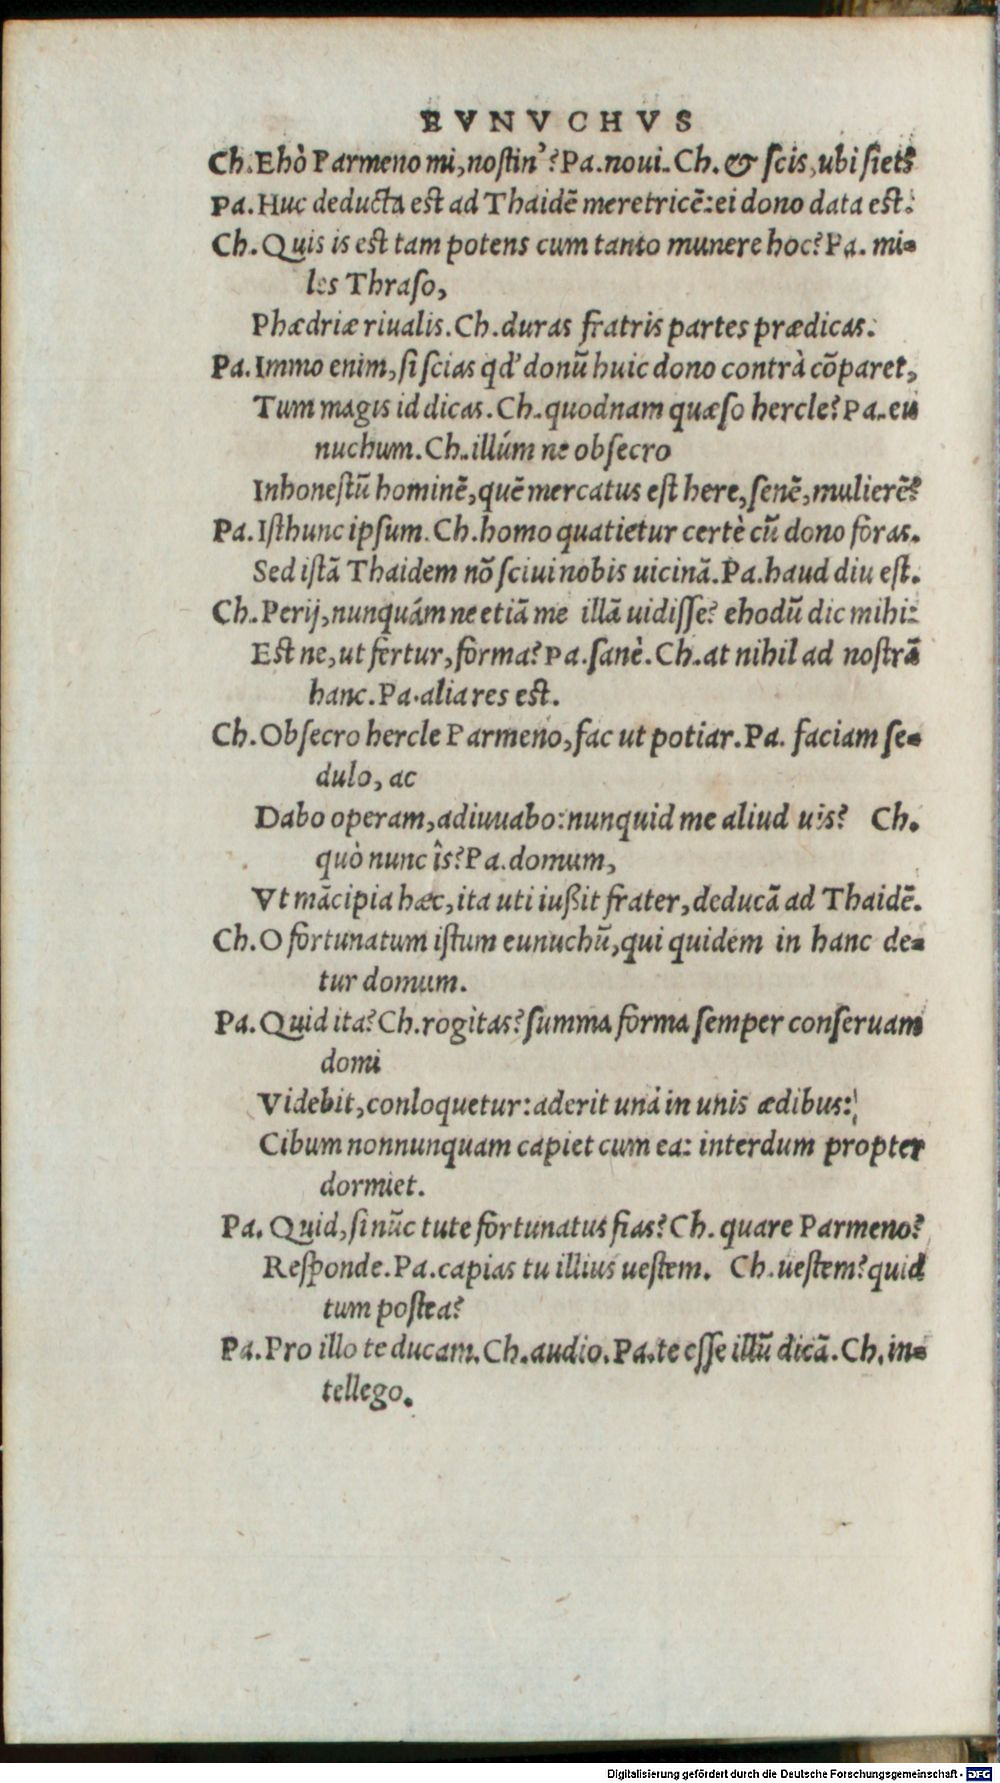 EVNVCHVS
Ch.Ehò Parmeno mi,noſtin'?Pa.noui.Ch.& ſcis,ubi ſiet?
Pa.Huc deducta eſt ad Thaidē meretricē:ei dono data eſt.
Ch.Quis is eſt tam potens cum tanto munere hoc?Pa. mi-
les Thraſo,
Phædriæ riualis.Ch.duras fratris partes prædicas.
Pa.Immo enim,ſi ſcias qd' donū huic dono contrà cōparet,
Tum magis id dicas.Ch.quodnam quæſo hercle?Pa.eu
nuchum.Ch.illúm ne obſecro
Inhoneſtū hominē,quē mercatus eſt here,ſenē,mulierē?
Pa.Iſthunc ipſum.Ch.homo quatietur certè cū dono foras.
Sed iſtā Thaidem nō ſciui nobis uicinā.Pa.haud diu eſt.
Ch.Perij,nunquám ne etiā me illā uidiſſe? ehodū dic mihi:
Eſt ne,ut fertur,forma?Pa.ſanè.Ch.at nihil ad noſtrā
hanc.Pa.alia res eſt.
Ch.Obſecro hercle Parmeno,fac ut potiar.Pa. faciam ſe-
dulo, ac
Dabo operam,adiuuabo:nunquid me aliud uis? Ch.
quò nunc îs?Pa.domum,
Vt mācipia hæc,ita uti iußit frater,deducā ad Thaidē.
Ch.O fortunatum iſtum eunuchū,qui quidem in hanc de-
tur domum.
Pa.Quid ita?Ch.rogitas?ſumma forma ſemper conſeruam
domi
Videbit,conloquetur:aderit unà in unis ædibus:
Cibum nonnunquam capiet cum ea: interdum propter
dormiet.
Pa. Quid,ſi nūc tute fortunatus fias?Ch. quare Parmeno?
Reſponde.Pa.capias tu illius ueſtem. Ch.ueſtem?quid
tum poſtea?
Pa.Pro illo te ducam.Ch.audio.Pa.te eſſe illū dicā.Ch.in-
tellego.
Digitalisierung gefördert durch die Deutsche Forschungsgemeinschaft - DFG